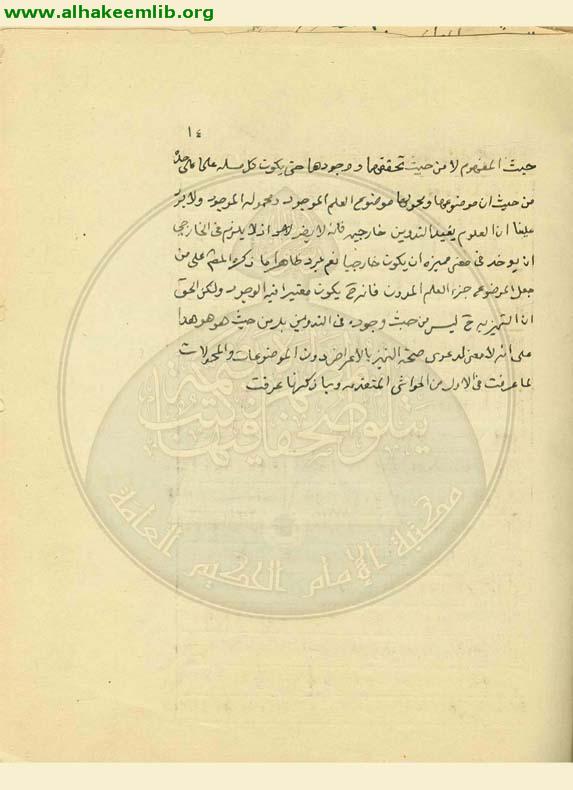 www.alhakeemlib.org
١٤
حيث المفهوم لا من حيث تحققها ووجودها حتى يكون كل مسئله علما على حدة
من حيث ان موضوعها ومحمولها موضوع العلم الموجود ومحموله الموجود ولا يرد
علينا ان العلوم بقيد التدوين خارجية فانه لا يضر لا هو اذ لا يلزم في الخارجي
ان يوخذ في مميزه ان يكون خارجيا نعم يرد ظاهرا ما ذكره على من
جعل الموضوع جزء العلم المدون فانه ح يكون معتبرا فيه الوجود ولكن الحق
ان التميز به ح ليس من حيث وجوده في التدوين بل من حيث هو هو هذا
على انه لا معنى لدعوى صحة التميز بالاعراض دون الموضوعات والمحمولات
لما عرفت في الاول من الحواشي المتقدمه وبما ذكرنا عرفت
مكتبة الإمام الحكيم العامة